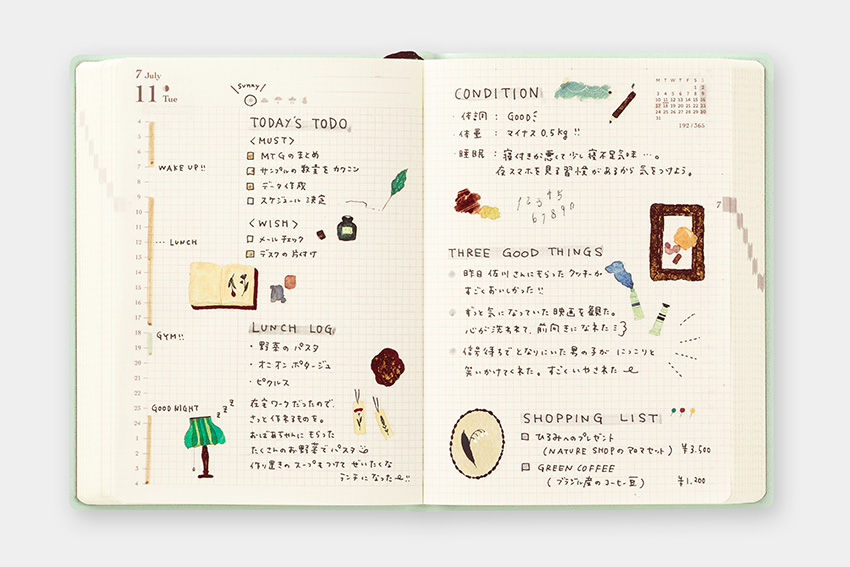 7 July
11 Tue
Sunny
4
5
6
7
WAKE UP!!
8
9
10
11
… LUNCH
12
13
14
15
16
17
18
GYM!!
19
20
21
22
23
GOOD NIGHT
24
1
2
3
4
z z z
TODAY'S TODO
<MUST>
MTGのまとめ
サンプルの数量をカクニン
データ作成
スケジュール決定
<WISH>
メールチェック
デスクの片付け
LUNCH LOG
・野菜のパスタ
・オニオンポタージュ
・ピクルス
在宅ワークだったので、
さっと作れるものを。
おばあちゃんにもらった
たくさんのお野菜でパスタ
作り置きのスープもつけてぜいたくな
ランチになった〜!!
CONDITION
・体調 : GOOD
・体重 : マイナス0.5kg!!
・睡眠 : 寝付きが悪くて少し寝不足気味…。
夜スマホを見る習慣があるから気をつけよう。
1 2 3 4 5
6 7 8 9 0
THREE GOOD THINGS
昨日佐川さんにもらったクッキーが
すごくおいしかった!!
ずっと気になっていた映画を観た。
心が洗われて、前向きになれた
信号待ちでとなりにいた男の子がにっこりと
笑いかけてくれた。すごくいやされた〜
SHOPPING LIST
ひろみへのプレゼント
(NATURE SHOPのアロマセット) ¥3.500
GREEN COFFEE
(ブラジル産のコーヒー豆) ¥1.200
M T W T F S S
1 2
3 4 5 6 7 8 9
10 11 12 13 14 15 16
17 18 19 20 21 22 23
24 25 26 27 28 29 30
31
192/365
7